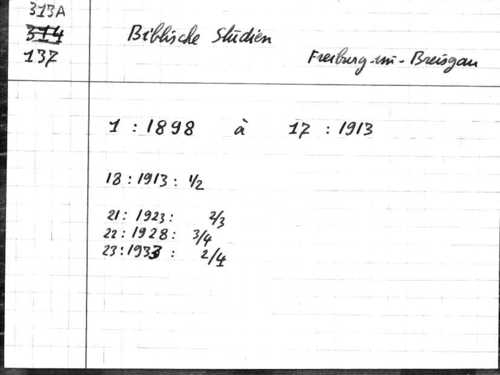 313A
314
137
Biblische Studien
Freiburg-im-Breisgau
1 : 1898 à 17 : 1913
18 : 1913 : 1/2
21 : 1923 : 2/3
22 : 1928 : 3/4
23 : 1933 : 2/4